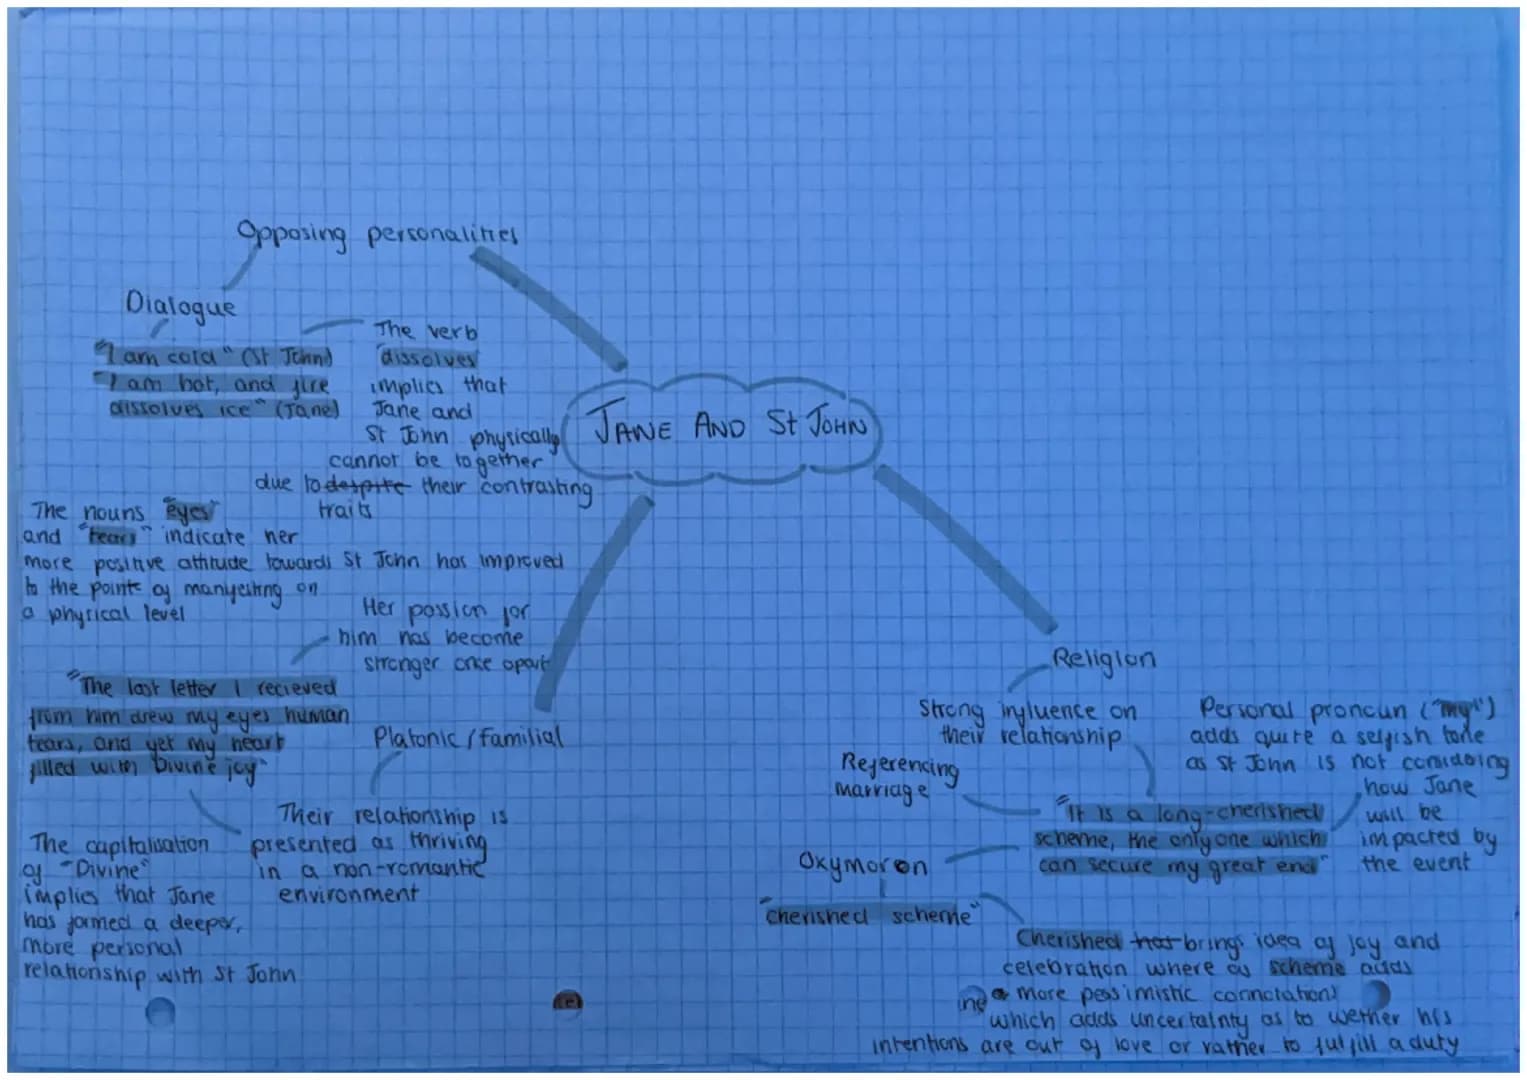 Opposing personalities
Dialogue
"I am cold" (St John)
"I am hot, and fire
dissolves ice" (Jane)
The verb
"dissolves"
implies that
Jane and
St John physically
cannot be together
due to despite their contrasting
traits
JANE AND St JOHN
The nouns "eyes"
and "tears" indicate her
more positive attitude towards St John has improved
to the point of manifesting on
a physical level
Her passion for
him has become
stronger once apart
"The last letter I recieved
from him drew my eyes human
tears, and yet my heart
filled with Divine joy"
Platonic/familial
Their relationship is
presented as thriving
in a non-romantic
environment
The capitalisation
of "Divine"
implies that Jane
has formed a deeper,
more personal
relationship with St John
Religion
Strong influence on
their relationship
Referencing
marriage
"It is a long-cherished
scheme, the only one which
can secure my great end"
Personal pronoun ("my")
adds quite a selfish tone
as St John is not considing
how Jane
will be
impacted by
the event
Oxymoron
"cherished scheme"
Cherished has brings idea of joy and
celebration where as scheme adds
more pessimistic connotations
which adds uncertainty as to wether his
intentions are out of love or rather to fulfill a duty
ne
(e)